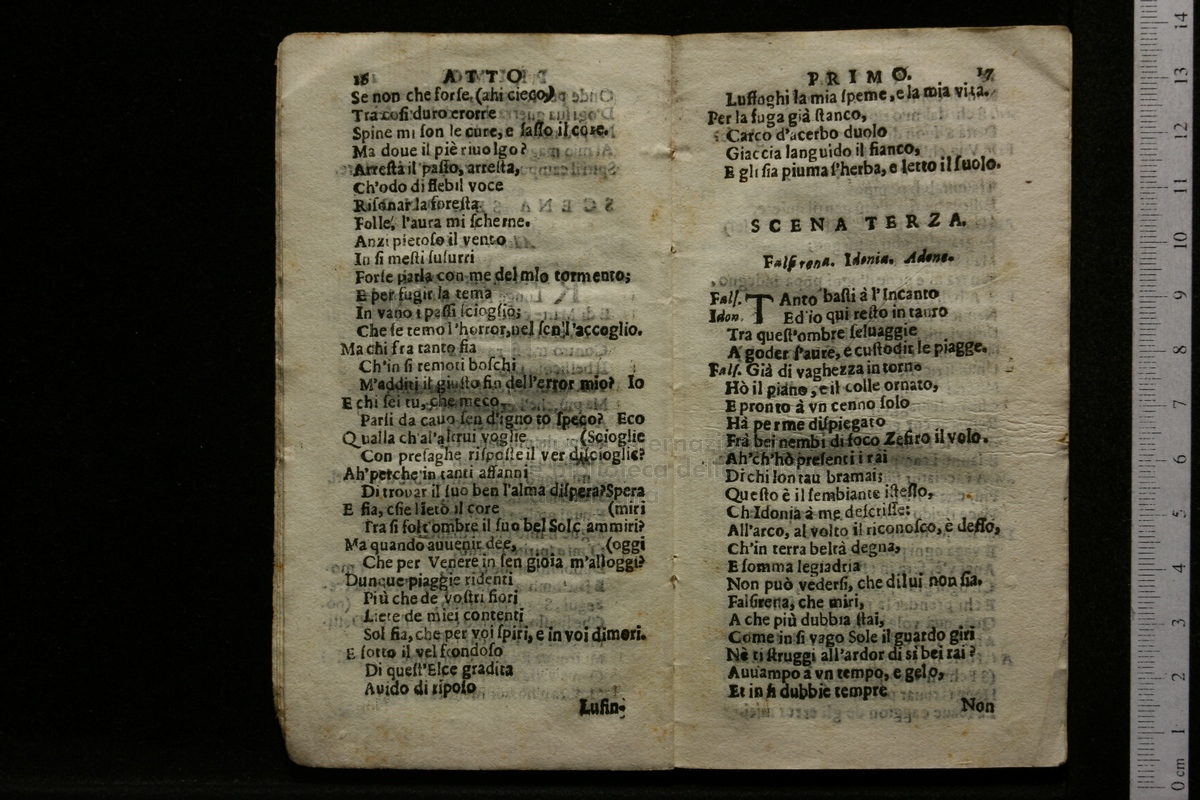 16 ATTO
Se non che forse (ahi cieco)
Tra cosi duro errore
Spine mi son le cure, e sasso il core.
Ma doue il piè riuolgo?
Arresta il passo, arresta,
Ch'odo di flebil voce
Risonar la foresta
Folle, l'aura mi scherne.
Anzi pietoso il vento
In si mesti susurri
Forse parla con me del mIo tormento;
E per fugir la tema
In vano i passi scioglio;
Che se temo l'horror, nel sen l'accoglio.
Ma chi fra tanto fia
Ch'in si remoti boschi
M'additi il giusto fin dell'error mio? Io
E chi sei tu, che meco
Parli da cauo sen d'ignoto speco? Eco
Qualla ch'al'altrui voglie (Scioglie
Con presaghe risposte il ver discioglie?
Ah'perche in tanti affanni
Di trouar il suo ben l'alma dispera? Spera
E fia, che lieto il core (miri
Tra si folt'ombre il suo bel Sole ammiri?
Ma quando auuenir dee, (oggi
Che per Venere in sen gioia m'alloggi?
Dunque piaggie ridenti
Più che de vostri fiori
Liete de miei contenti
Sol fia, che per voi spiri, e in voi dimori.
E sotto il vel frondoso
Di quest'Elce gradita
Auido di riposo
Lusin-
PRIMO. 17
Lusinghi la mia speme, e la mia vita.
Per la fuga già stanco,
Carco d'acerbo duolo
Giaccia languido il fianco,
E gli sia piuma l'herba, e letto il suolo.
SCENA TERZA.
Falsirena. Idonia. Adone.
Fals. TAnto basti à l'Incanto
Idon. Ed io qui resto in tauro
Tra quest'ombre seluaggie
A goder l'aure, e custodir le piagge.
Fals. Già di vaghezza intorno
Hò il piano, e il colle ornato,
E pronto à vn cenno solo
Hà per me dispiegato
Frà bei nembi di foco Zefiro il volo.
Ah'ch'hò presenti i rai
Di chi lontau bramai;
Questo è il sembiante istesso,
Ch Idonia à me descrisse:
All'arco, al volto il riconosco, è desso,
Ch'in terra beltà degna,
E somma legiadria
Non può vedersi, che di lui non sia.
Falsirena, che miri,
A che più dubbia stai,
Come in si vago Sole il guardo giri
Nè ti struggi all'ardor di si bei rai?
Auuampo a vn tempo, e gelo,
Et in si dubbie tempre
Non